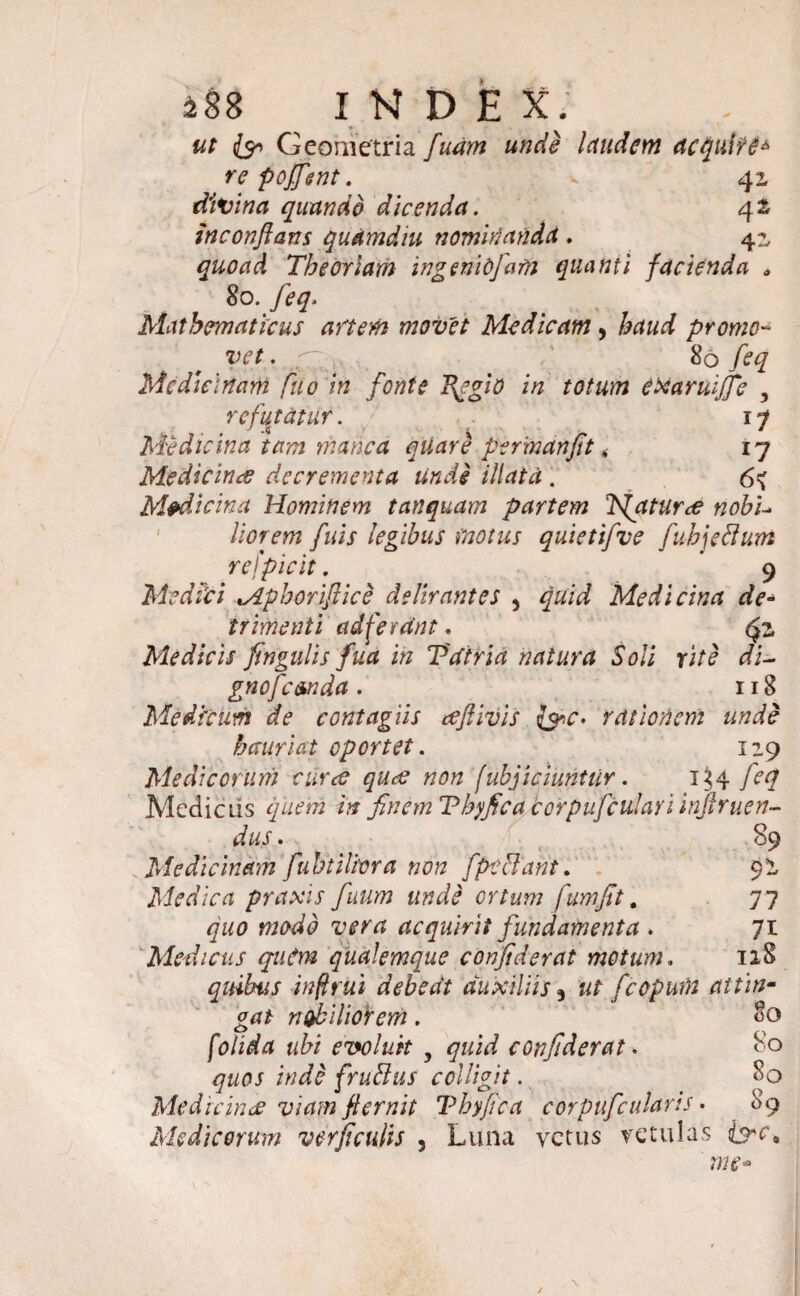 288 INDEX.
ut & Geometria ſuam undè laudem acquire-
re poſſent. 42
divina quandò dicenda. 42
inconſtans quàmdiu nominanda. 42
quoad Theoriam ingenioſam quanti facienda.
80. ſeq.
Mathematicus artem movet Medicam, haud promo-
vet. 80 ſeq
Medicinam ſuo in fonte Regio in totum exaruiſſe,
refutatur. 17
Medicina tam manca quare permanſit. 17
Medicinæ decrementa undè illata. 65
Medicina Hominem tanquam partem Naturæ nobi-
liorem ſuis legibus motus quietiſve ſubjectum
reſpicit. 9
Medici Aphoriſticè delirantes, quid Medicina de-
trimenti adferant. 62
Medicis ſingulis ſua in Patria natura Soli ritè di-
gnoſcanda. 118
Medicum de contagiis æſtivis &c. rationem undè
hauriat oportet. 129
Medicorum curæ quæ non ſubjiciuntur. 134 ſeq
Medicus quem in finem Phyſica corpuſculari inſtruen-
dus. 89
Medicinam ſubtiliora non ſpectant. 92
Medica praxis ſuum undè ortum ſumſit. 77
quo modò vera acquirit fundamenta. 71
Medicus quem qualemque conſiderat motum. 128
quibus inſtrui debeat auxiliis, ut ſcopum attin-
gat nobiliorem. 80
ſolida ubi evoluit, quid conſiderat. 80
quos indè fructus colligit. 80
Medicinæ viam ſternit Phyſica corpuſcularis. 89
Medicorum verſiculis, Luna vetus vetulas &c.
me-